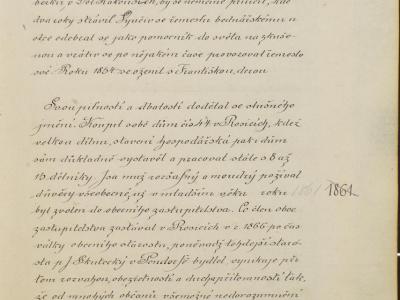 dva roky strávil. Vyučiv se řemeslu bednářskému u
otce odebral se jako pomocník do světa na zkuše-
nou a vrátiv se po nějakém čase provozoval řemeslo
své. Roku 1854 se oženil s Františkou, dcerou
Svou pilností a dbalostí dodělal se slušného
jmění. Koupil sobě dům čís. 44 v Rosicích, k dež
velkou dílnu, stavení hospodářská pak i dům
sám důkladně vystavěl a pracoval stále s 8 až
15 dělníky. Jsa muž rozšafný a moudrý požíval
důvěry všeobecné, už v mladším věku roku 1861 1861
byl zvolen do obecního zastupitelstva. Co člen obec.
zastupitelstva zastával v Rosicích v r. 1866 po čas
války obecního starostu, poněvadž tehdejší staro-
sta p. J. Skutecký v Řondorfě bydlel, vynikaje při
tom rozvahou, obezřetností a duchapřítomností tak,
že od mnohých občanů všemožné nedorozumění